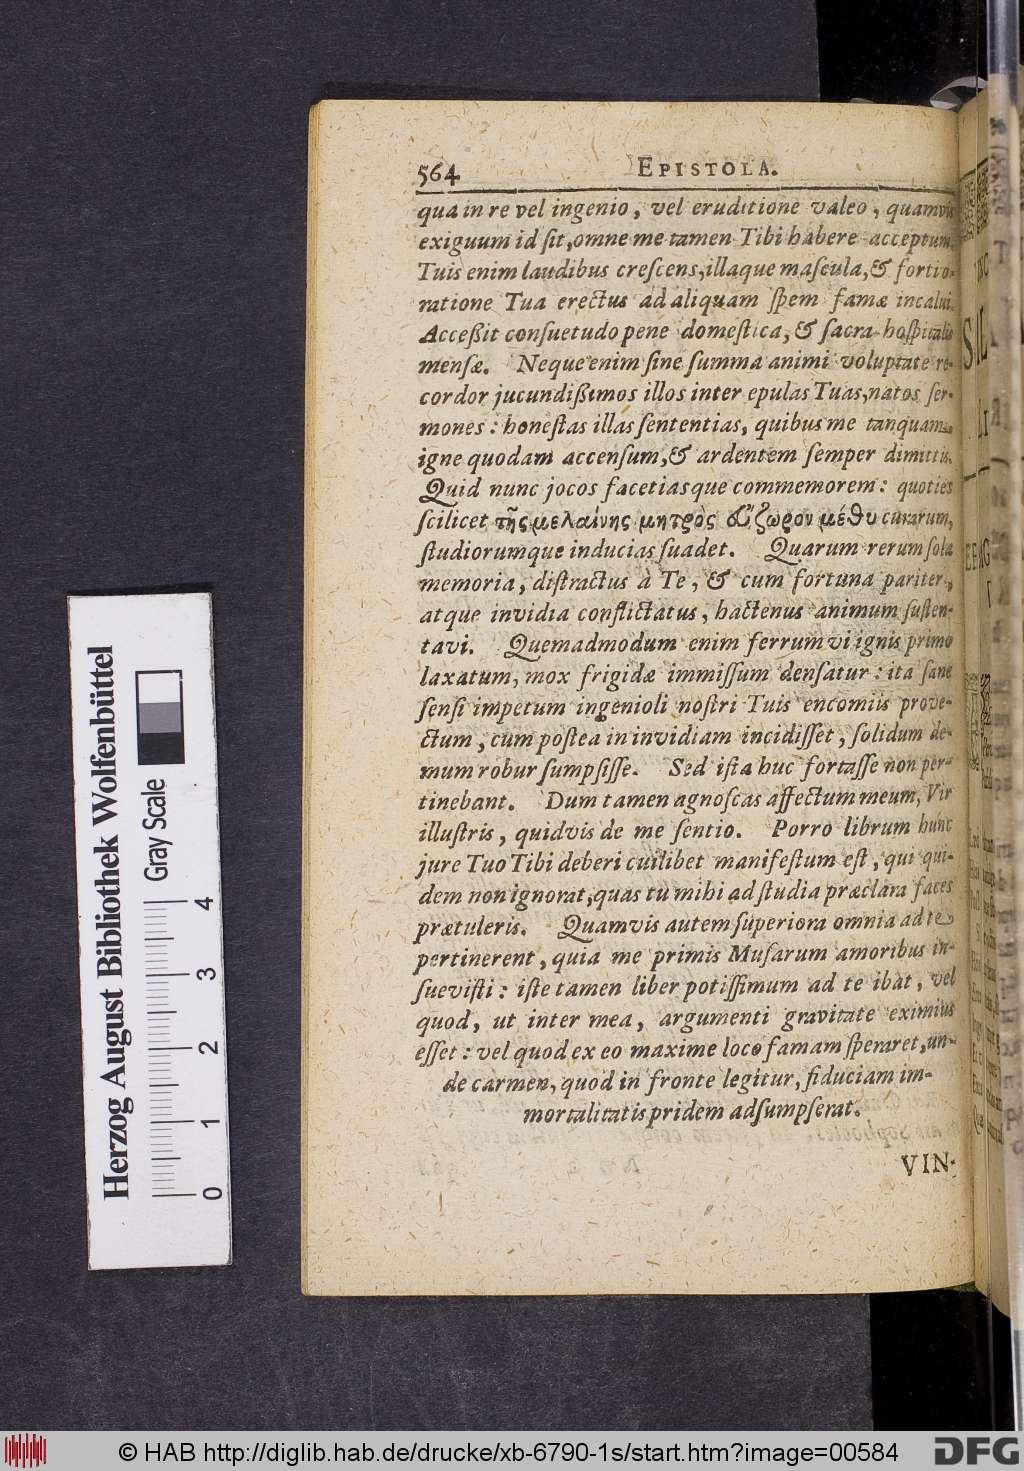 564 EPISTOLA.
qua in re vel ingenio, vel eruditione valeo, quamvis
exiguum id sit, omne me tamen Tibi habere acceptum.
Tuis enim laudibus crescens, illaque mascula, & fortio-
ratione Tua erectus ad aliquam spem famæ incalui.
Accessit consuetudo pene domestica, & sacra hospitalis
mensæ. Neque enim sine summa animi voluptate re-
cordor jucundissimos illos inter epulas Tuas, natos ser-
mones: honestas illas sententias, quibus me tanquam
igne quodam accensum, & ardentem semper dimittis.
Quid nunc jocos facetiasque commemorem: quoties
scilicet τῆς μελαίνης μητρὸς εὔζωρον μέθυ curarum,
studiorumque inducias suadet. Quarum rerum sola
memoria, distractus à Te, & cum fortuna pariter,
atque invidia conflictatus, hactenus animum susten-
tavi. Quemadmodum enim ferrum vi ignis primo
laxatum, mox frigidæ immissum densatur: ita sane
sensi impetum ingenioli nostri Tuis encomiis prove-
ctum, cum postea in invidiam incidisset, solidum de-
mum robur sumpsisse. Sed ista huc fortasse non per-
tinebant. Dum tamen agnoscas affectum meum, Vir
illustris, quidvis de me sentio. Porro librum hunc
jure Tuo Tibi deberi cuilibet manifestum est, qui qui-
dem non ignorat, quas tu mihi ad studia præclara faces
prætuleris. Quamvis autem superiora omnia ad te
pertinerent, quia me primis Musarum amoribus in-
suevisti: iste tamen liber potissimum ad te ibat, vel
quod, ut inter mea, argumenti gravitate eximius
esset: vel quod ex eo maxime loco famam speraret, un-
de carmen, quod in fronte legitur, fiduciam im-
mortalitatis pridem adsumpserat.
VIN-
Herzog August Bibliothek Wolfenbüttel
Gray Scale
0 1 2 3 4
© HAB http://diglib.hab.de/drucke/xb-6790-1s/start.htm?image=00584
DFG